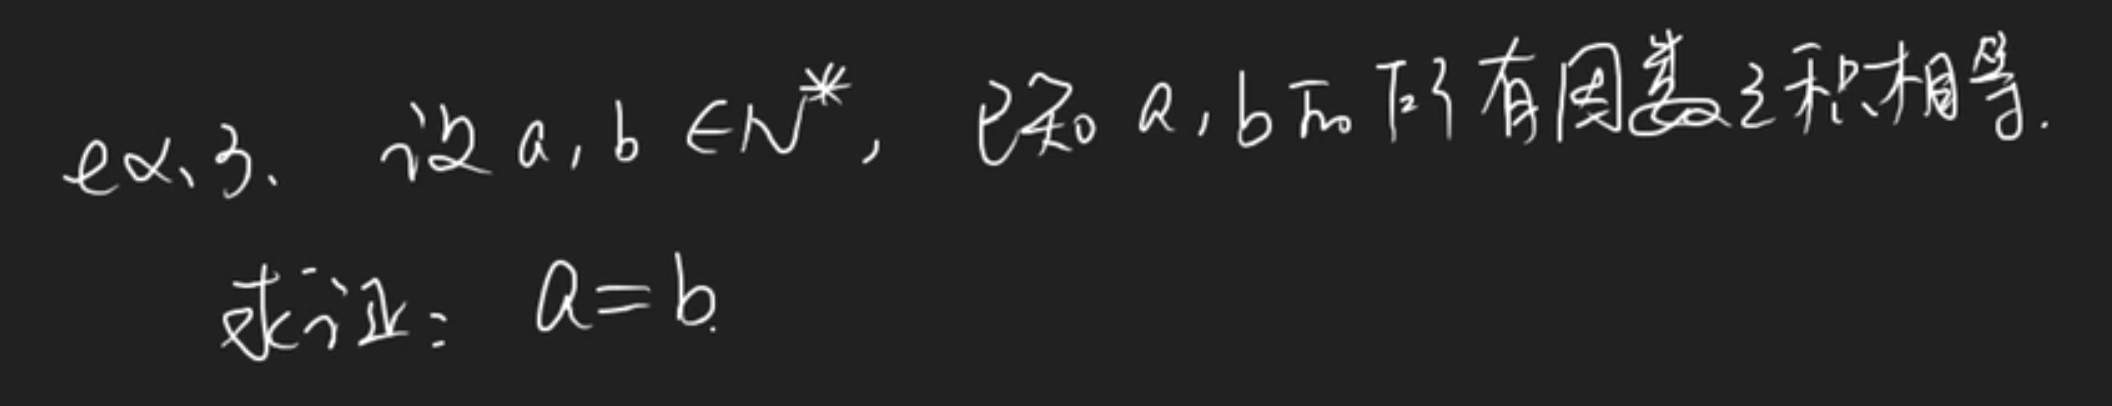 ex、3、 设 a, b ∈ N*, 已知 a, b 而所有因数之积相等.
求证: a = b.